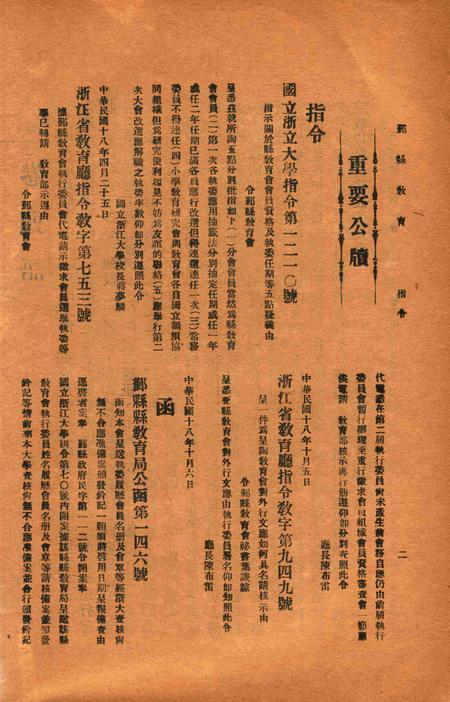 鄞縣敎育　指令　二
重要公牘
指令
國立浙江大學指令第一二一〇號
指示關於縣敎育會會員資格及執委任期等五點疑義由
令鄞縣敎育會
呈悉茲就所詢五點分別批指如下(一)分會會員當然爲縣敎育
會會員(二)第一次各執委應用抽籤法分別抽定任期或任一年
或任二年任期已滿各員應行改選但得連選連任一次(三)常務
委員不得連任(四)小學敎育研究會與敎育會各自獨立無須協
同組織但爲研究便利起見不妨爲友誼的聯絡(五)應舉行第二
次大會改選應解職之執委半數仰卽分別遵照此令
國立浙江大學校長蔣夢麟
中華民國十八年四月二十五日
浙江省敎育廳指令敎字第七五三號
據鄞縣敎育會執行委員會代電請示徵求會員選舉執委等
事已轉請　敎育部示遵由
令鄞縣敎育會
代電悉在第二屆執行委員尙未產生前會務自應仍由前屆執行
委員會暫行辦理至重行徵求會員組織會員資格審查會一節應
候電請　敎育部核示再行飭遵仰卽分別查照此令
廳長陳布雷
中華民國十八年十月五日
浙江省敎育廳指令敎字第九四九號
呈一件爲呈詢敎育會對外行文應如何具名請核示由
令鄞縣敎育會祕書葉謙諒
呈悉查縣敎育會對外行文應由執行委員署名仰卽知照此令
廳長陳布雷
中華民國十八年十月六日
函
鄞縣縣敎育局公函第一四六號
函知本會呈送執委履歷會員名册及會章等經浙大查核尙
無不合應准備案頒發鈐記一顆須將啓用日期呈報備查由
逕啓者案奉　鄞縣政府民字第一一二號令開案奉
國立浙江大學訓令第七〇號內開案據該縣縣敎育局呈送該縣
敎育會執行委員姓名履歷會員名册及會章等請核備案並頒發
鈐記等情前來本大學查核尙無不合應准備案並合行頒發鈐記